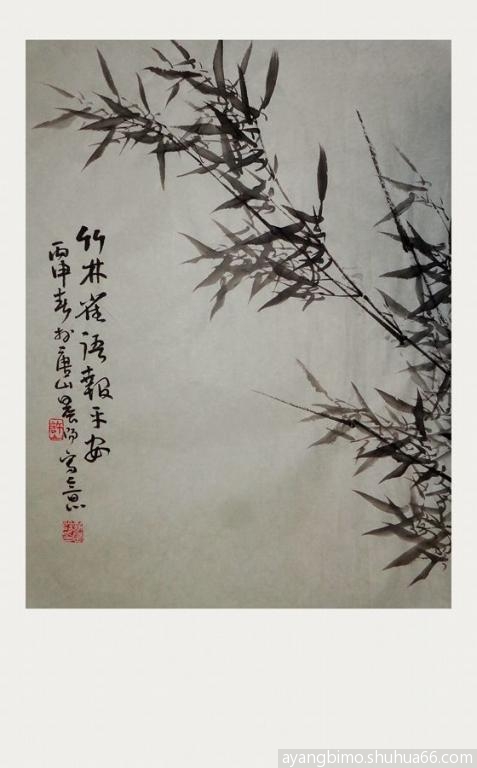 竹林雀語報平安
丙申春於唐山晨寫意
許
ayangbimo.shuhua66.com